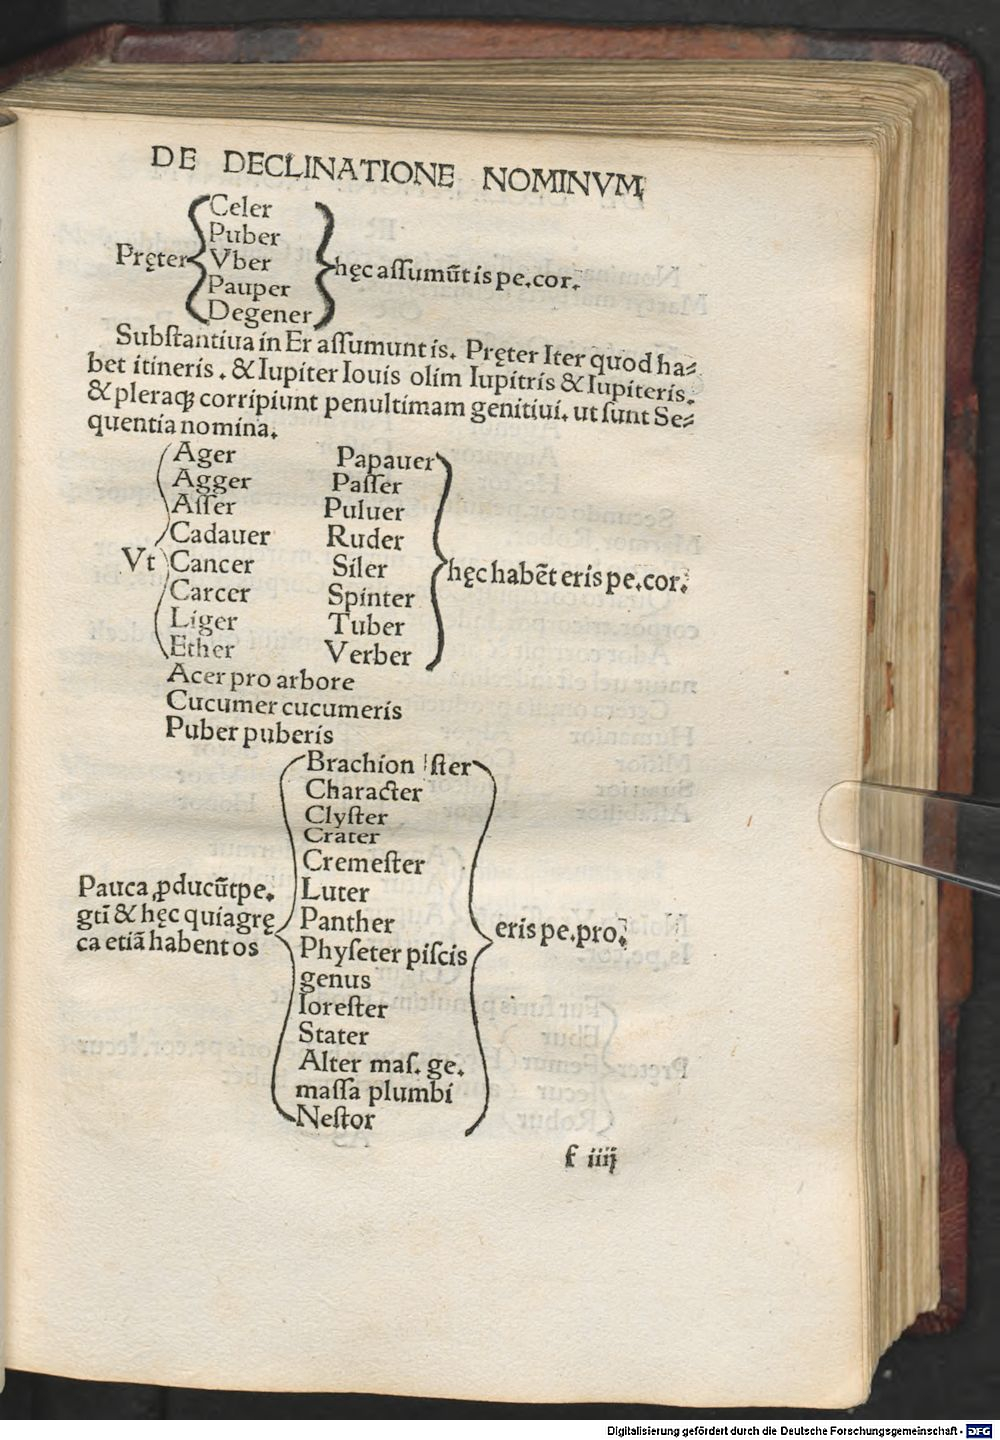 DE DECLINATIONE NOMINVM
Celer
Puber
Pręter Vber hęc aſſumūt is pe. cor.
Pauper
Degener
Subſtantiua in Er aſſumunt is. Pręter Iter quod ha⸗
bet itineris. & Iupiter Iouis olim Iupitris & Iupiteris.
& pleraqꝫ corripiunt penultimam genitiui. ut ſunt Se⸗
quentia nomina.
Ager Papauer
Agger Paſſer
Aſſer Puluer
Cadauer Ruder
Vt Cancer Siler hęc habēt eris pe. cor.
Carcer Spinter
Liger Tuber
Ether Verber
Acer pro arbore
Cucumer cucumeris
Puber puberis
Brachion ſter
Character
Clyſter
Crater
Cremeſter
Pauca ꝓducūt pe. Luter
gti & hęc quia grę Panther eris pe. pro.
ca etiā habent os Phyſeter piſcis
genus
Ioreſter
Stater
Alter maſ. ge.
maſſa plumbi
Neſtor
f iiij
Digitalisierung gefördert durch die Deutsche Forschungsgemeinschaft - DFG